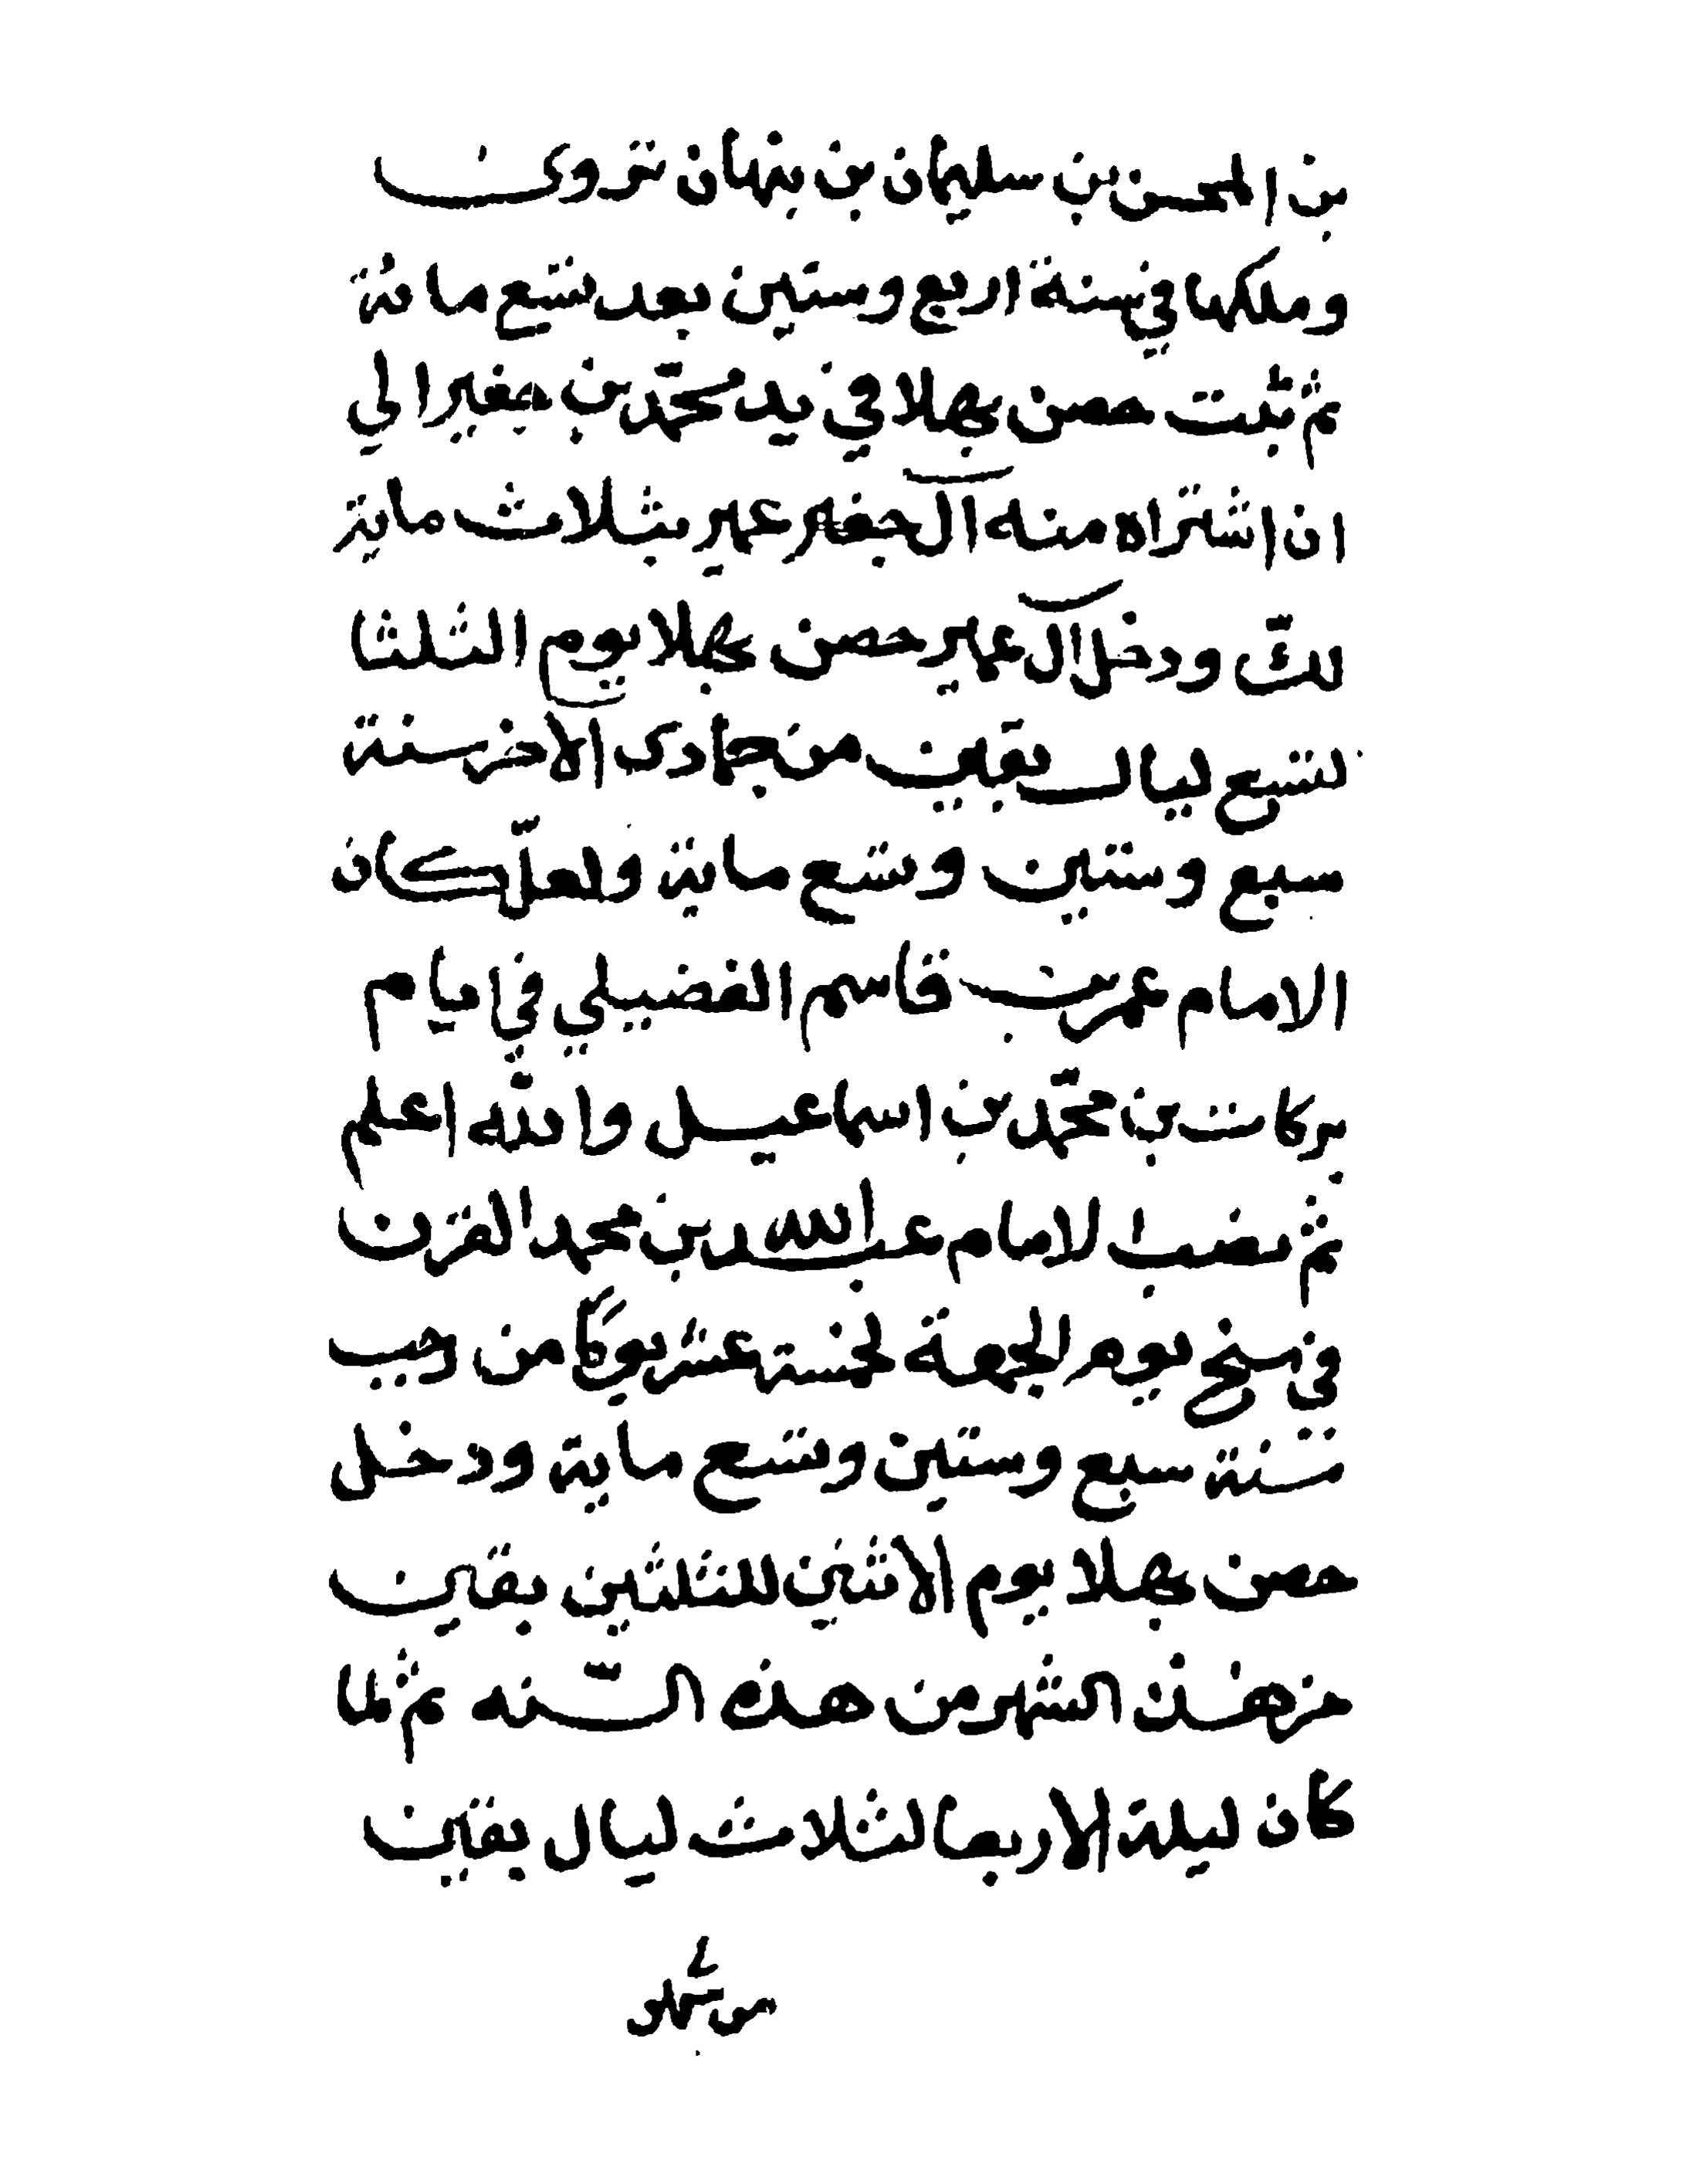 بن المحسن بن سليمان بن بنهان نزوى
وملكها في سنة اربع وستين بعد تسع مائة
ثم ثبت حصن بهلا في يد محمد بن جفير الى
ان اشتراه منه آل جفير عمير بثلاث ماية
لكّ ودخل آل عمير حصن بهلا يوم الثلثا
لتسع ليال بقين من جمادى الاخر سنة
سبع وستين وتسع ماية ولعل كان
الامام عمر بن قاسم الفضيلي في ايام
بركات بن محمّد بن اسماعيل والله اعلم
ثم نصب الامام عبدالله بن محمد القرن
في نسخ يوم الجمعة لخمسة عشر يومًا من رجب
سنة سبع وستين وتسع ماية ودخل
حصن بهلا يوم الاثنين لليلتين بقين
من هذا الشهر من هذه السّنه ثم لما
كان ليلة الاربعا لثلاث ليال بقين